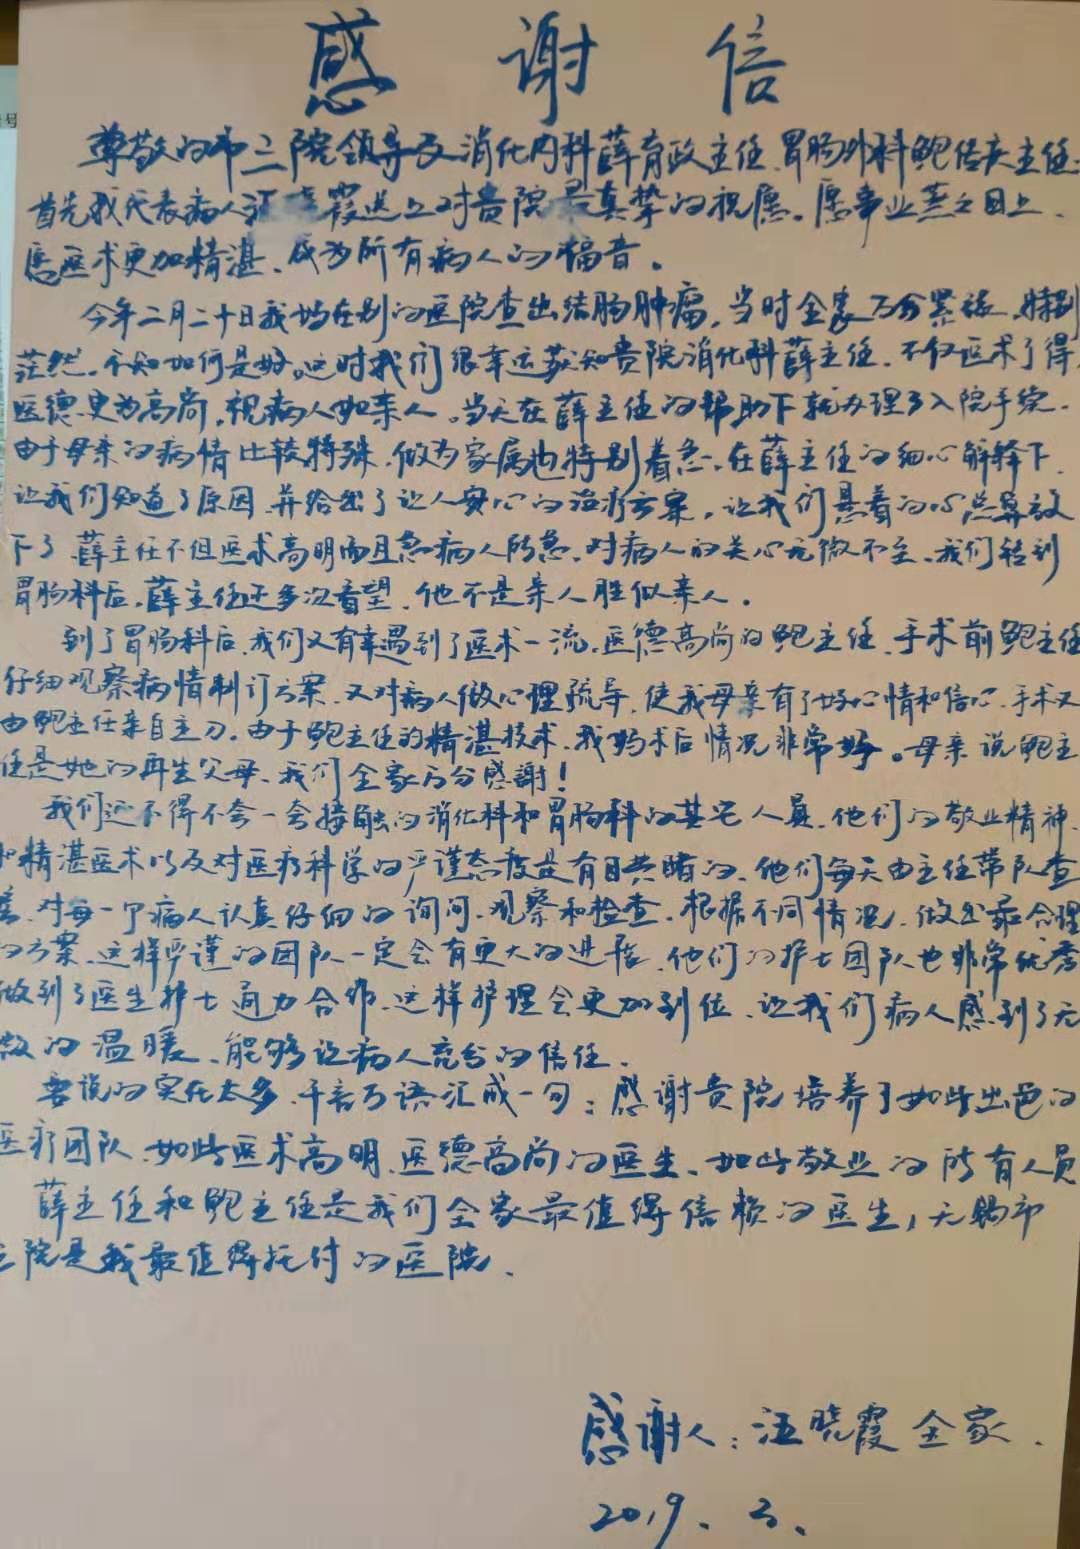 感谢信
尊敬的市三院领导及消化内科薛育政主任、胃肠外科鲍传庆主任:
首先我代表病人汪晓霞送上对贵院最真挚的祝愿。愿事业蒸蒸日上、
愿医术更加精湛、成为所有病人的福音。
今年二月二十日我妈在别的医院查出结肠肿瘤,当时全家万分紧张、特别
茫然。不知如何是好。这时我们很幸运获知贵院消化科薛主任.不仅医术了得,
医德更为高尚,视病人如亲人。当天在薛主任的帮助下就办理了入院手续.
由于母亲的病情比较特殊,做为家属也特别着急。在薛主任的细心解释下、
让我们知道了原因、并给出了让人安心的治疗方案,让我们悬着的心总算放
下了.薛主任不但医术高明而且急病人所急,对病人的关心无微不至、我们转到
胃肠科后,薛主任还多次看望、他不是亲人胜似亲人.
到了胃肠科后,我们又有幸遇到了医术一流,医德高尚的鲍主任、手术前鲍主任
仔细观察病情制订方案、又对病人做心理疏导、使我母亲有了好心情和信心、手术又
由鲍主任亲自主刀。由于鲍主任的精湛技术、我妈术后情况非常好。母亲说鲍主
任是她的再生父母、我们全家万分感谢!
我们还不得不夸一夸接触的消化科和胃肠科的其它人员、他们的敬业精神、
和精湛医术以及对医疗科学的严谨态度是有目共睹的、他们每天由主任带队查
房、对每一个病人认真仔细的询问、观察和检查、根据不同情况、做出最合理
的方案、这样严谨的团队一定会有更大的进展、他们的护士团队也非常优秀
做到了医生护士通力合作、这样护理会更加到位、让我们病人感到了无
微的温暖、能够让病人充分的信任.
要说的实在太多、千言万语汇成一句:感谢贵院培养了如此出色的
医疗团队、如此医术高明、医德高尚的医生、如此敬业的所有人员
薛主任和鲍主任是我们全家最值得信赖的医生,无锡市
三院是我最值得托付的医院、
感谢人:汪晓霞全家.
2019.3.